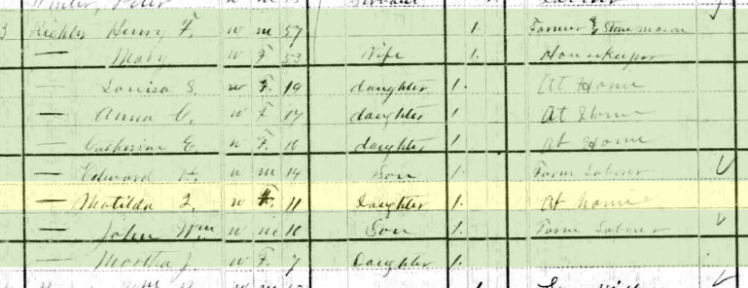 Henry F. w m 57 1. Farmer & Stone mason
— Mary w F 53 Wife 1. Housekeeper
— Louisa S. w F. 19 daughter 1. At Home
— Anna C. w F. 17 daughter 1. At Home
— Catherine E. w F. 16 daughter 1. At Home
— Edward H. w m 14 Son 1. Farm Laborer
— Matilda F. w F. 11 Daughter 1. At home
— John Wm w m 10 Son 1. Farm Laborer
— Martha J. w F. 7 Daughter 1.